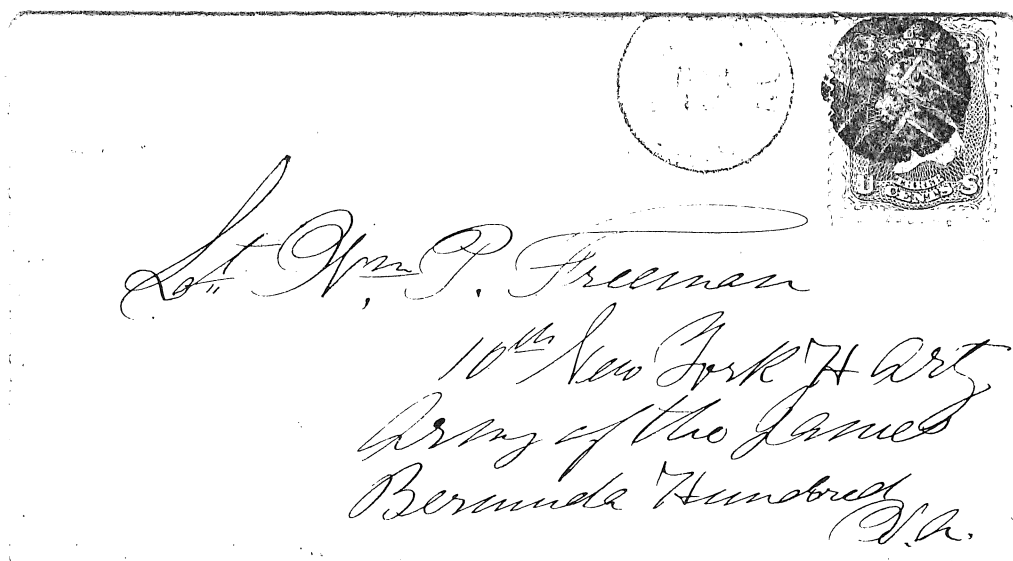 3 3
U THREE CENTS S
Lt. Wm. P. Freeman
10th New York H Arty
Army of the James
Bermuda Hundred
Va.